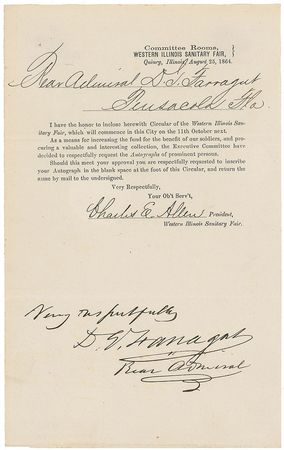 Committee Rooms,
WESTERN ILLINOIS SANITARY FAIR,
Quincy, Illinois, August 25, 1864.
Rear Admiral D. G. Farragut
Pensacola Fla
I have the honor to inclose herewith Circular of the Western Illinois San-
itary Fair, which will commence in this City on the 11th October next.
As a means for increasing the fund for the benefit of our soldiers, and pro-
curing a valuable and interesting collection, the Executive Committee have
decided to respectfully request the Autographs of prominent persons.
Should this meet your approval you are respectfully requested to inscribe
your Autograph in the blank space at the foot of this Circular, and return the
same by mail to the undersigned.
Very Respectfully,
Your Ob't Serv't,
Charles E. Allen President,
Western Illinois Sanitary Fair.
Very respectfully
D. G. Farragut
Rear Admiral